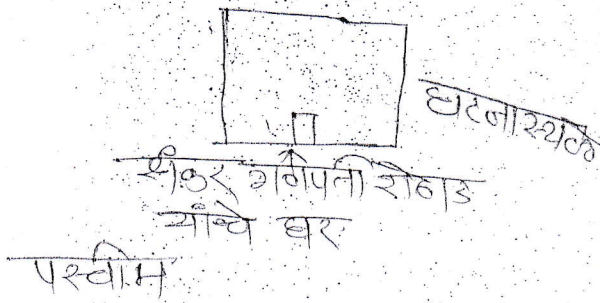 घटनास्थळ
शंकर गणपती रोहाड
यांचे घर
पस्चीम